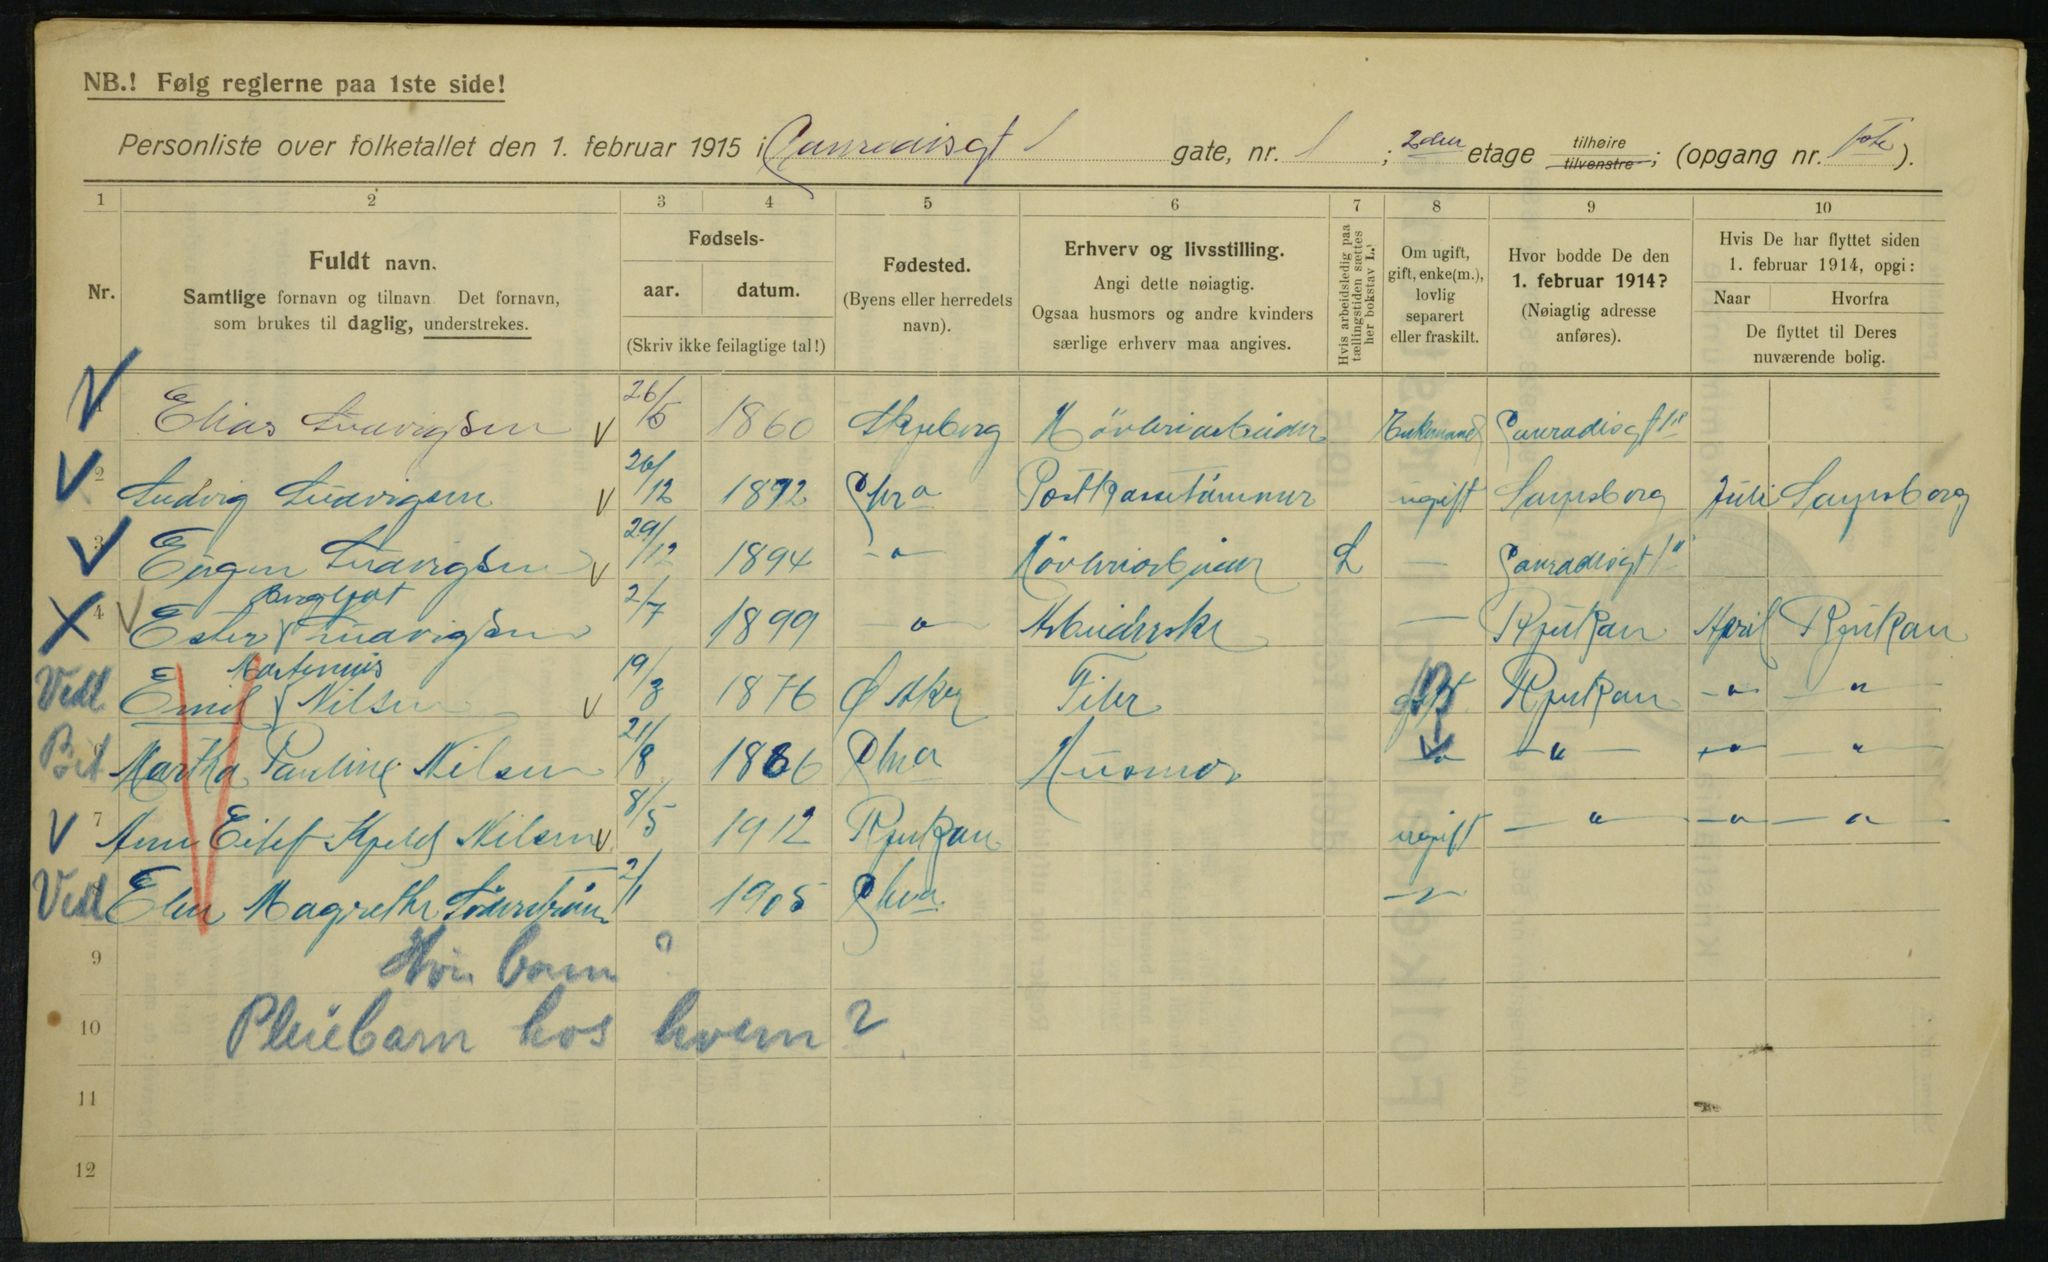 NB.! Følg reglerne paa 1ste side!
Personliste over folketallet den 1. februar 1915 i Conradisgt 1 gate, nr. 1; 2den etage tilhøire tilvenstre; (opgang nr. 1ste).
1 2 3 4 5 6 7 8 9 10
Nr.
Fuldt navn.
Samtlige fornavn og tilnavn Det fornavn,
som brukes til daglig, understrekes.
Fødsels-
aar. datum.
(Skriv ikke feilagtige tal!)
Fødested.
(Byens eller herredets
navn).
Erhverv og livsstilling.
Angi dette nøiagtig.
Ogsaa husmors og andre kvinders
særlige erhverv maa angives.
Hvis arbeidsledig paa
tællingstiden sættes
her bokstav L.
Om ugift,
gift, enke(m.),
lovlig
separert
eller fraskilt.
Hvor bodde De den
1. februar 1914?
(Nøiagtig adresse
anføres).
Hvis De har flyttet siden
1. februar 1914, opgi:
Naar Hvorfra
De flyttet til Deres
nuværende bolig.
1 Elias Ludvigsen 26/5 1860 Skjeberg Høvleriarbeider Enkemand Conradisgt 1
2 Ludvig Ludvigsen 26/12 1892 Chra Postkassetømmer ugift Sarpsborg Juli Sarpsborg
3 Eugen Ludvigsen 29/12 1894 -"- Høvleriarbeider L — Conradisgt 1
Bergljot
4 Ester Ludvigsen 2/7 1899 -"- Arbeiderske — Rjukan April Rjukan
Martenius
Vedl Emil Nilsen 19/3 1876 Ø Aker Filer gift B Rjukan -"- -"-
Bit 6 Martha Pauline Nilsen 21/8 1866 Chra Husmor -"- -"- -"- -"-
7 Eilef Kjeld Nilsen 8/5 1912 Rjukan ugift -"- -"- -"-
Vedl Elen Magrethe 2/1 1905 Chra -"-
9 barn?
10 Pleiebarn hos hvem?
11
12